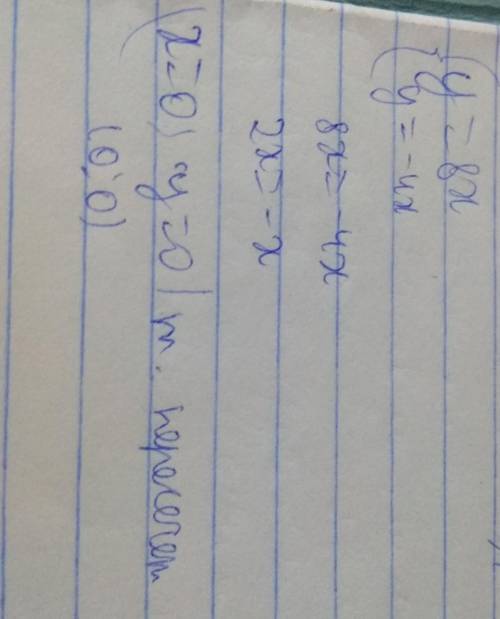 { y = 8x
y = -4x
8x = -4x
2x = -x
(x = 0; y = 0) т. пересечен
(0; 0)